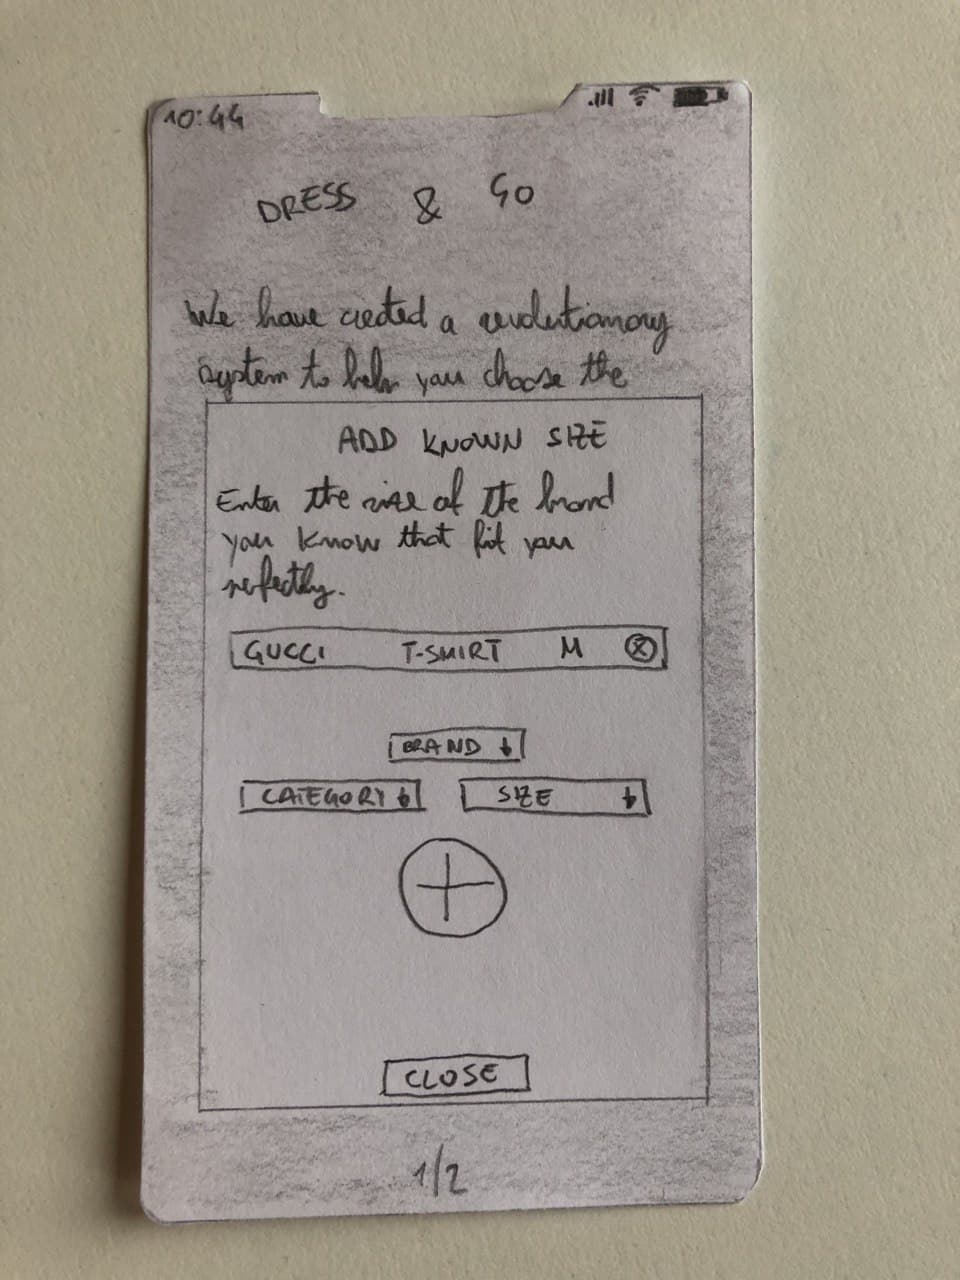 10:44
DRESS & GO
We have created a revolutionary
system to help you choose the
ADD KNOWN SIZE
Enter the size of the brand
you know that fit you
perfectly.
GUCCI T-SHIRT M X
BRAND ↓
CATEGORY ↓ SIZE ↓
+
CLOSE
1/2